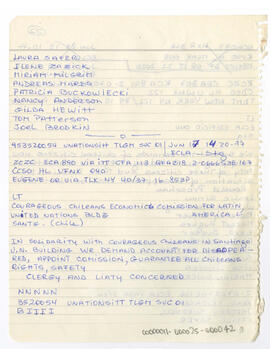 LAURA SAFER
ILENE ZABICKI
MIRIAM MILGRIM
ANDREAS MARES
PATRICIA BUCKOWIECKI
NANCY ANDERSON
GILDA HEWITT
TOM PATTERSON
JOEL BRODKIN
UNATIONSITT TLGM SUC 01 JUN 17
EUGENE OR VIA TLX NY
LT
COURAGEOUS CHILEANS ECONOMIC COMISSION FOR LATIN
UNITED NATIONS BLDG AMERICA
SANTE. (Chile)
IN SOLIDARITY WITH COURAGEOUS CHILEANS IN SANTIAGO
U.N. BUILDING WE DEMAND ACCOUNT FOR DISAPPEA-
RED, APPOINT COMISSION, GUARANTEE ALL CHILEANS
RIGHTS, SAFETY
CLERGY AND LAITY CONCERNED
NNNNN
3520054 UNATIONSITT TLGM SUC 01
BIIII
0000011-000025-000042